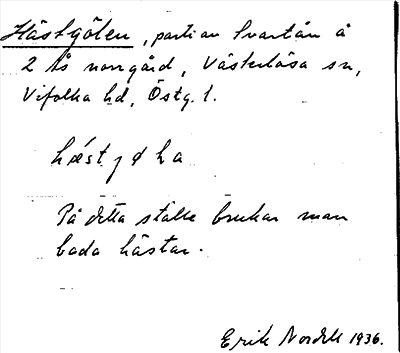 Hästgölen, parti av Svartån å
2 Ås norrgård, Västerlösa sn,
Vifolka hd, Östg. l.
hæst jø ha
På detta ställe brukar man
bada hästar.
Erik Nordell 1936.